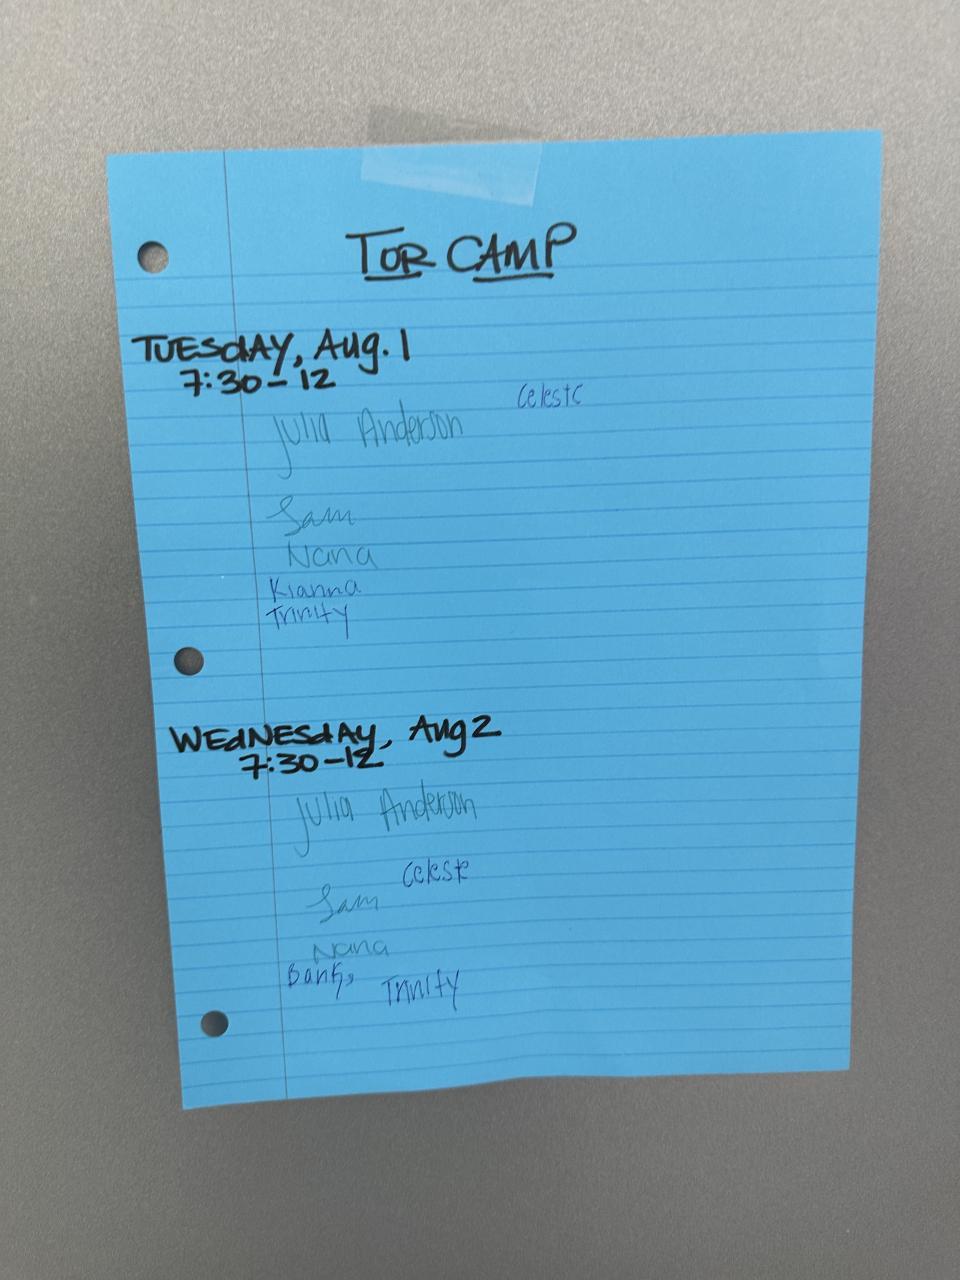 TOR CAMP
TUESdAY, Aug. 1
7:30-12
Celeste
Julia Anderson
Sam
Nana
Kianna
Trinity
WEdNESdAY, Aug 2
7:30-12
Julia Anderson
Celeste
Sam
Nana
Banks
Trinity